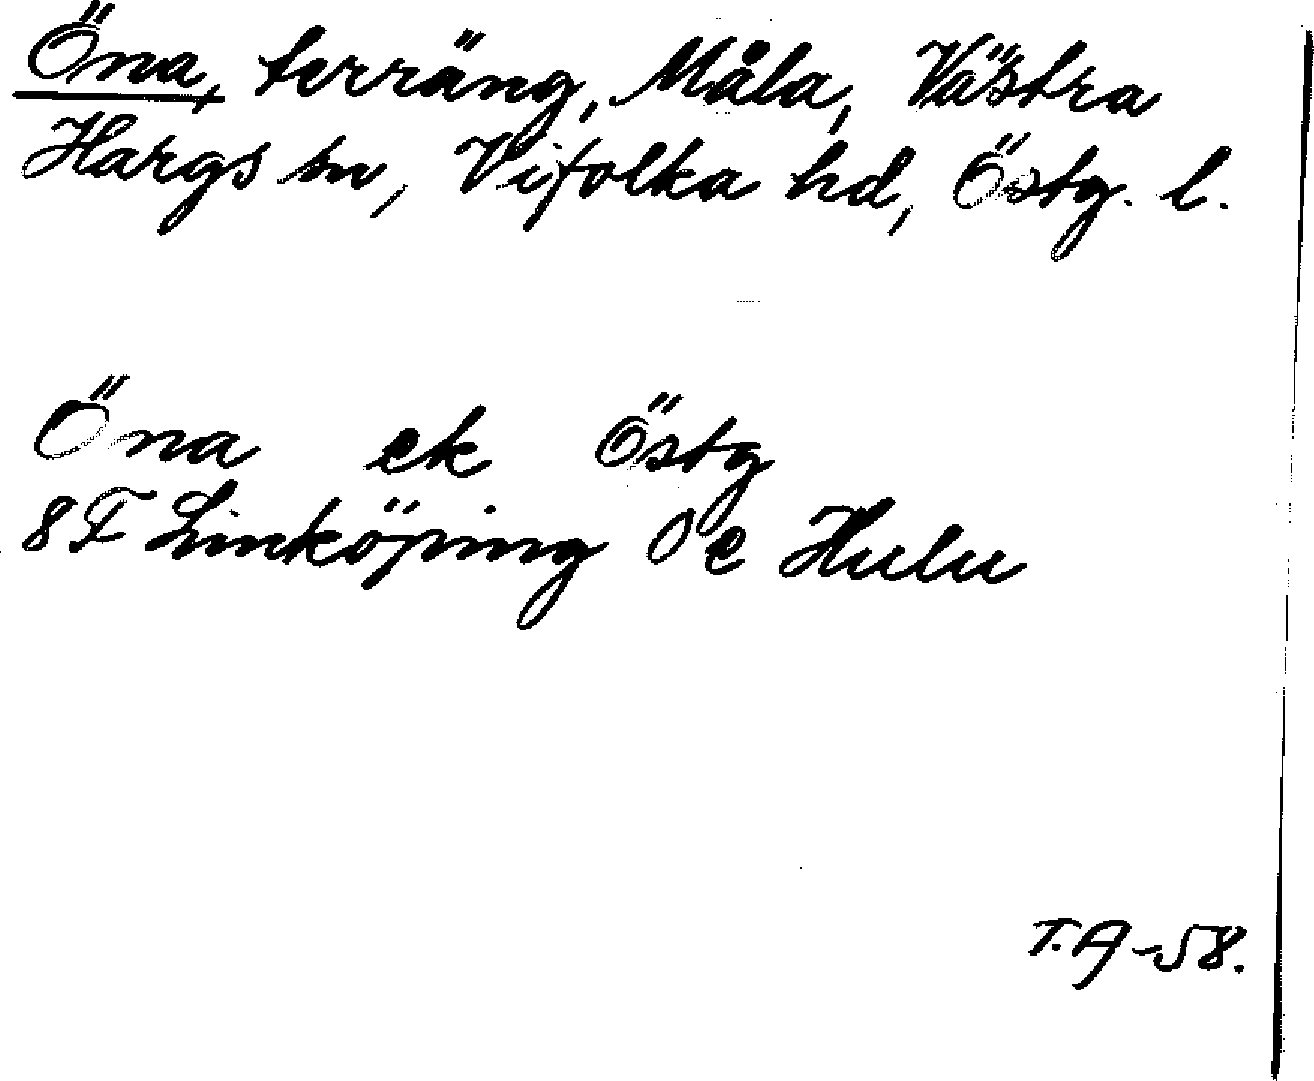 Öna, terräng, Måla, Västra
Hargs sn, Vifolka hd, Östg. l.
Öna ek Östg
8F Linköping 0 e Hulu
T.A-58.